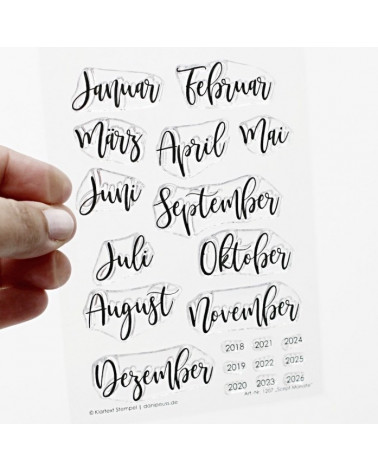 Januar Februar
März April Mai
Juni September
Juli Oktober
August November
Dezember
2018 2021 2024
2019 2022 2025
2020 2023 2026
© Klartext Stempel | danipeuss.de
Art.-Nr. 1207 „Script Monate“